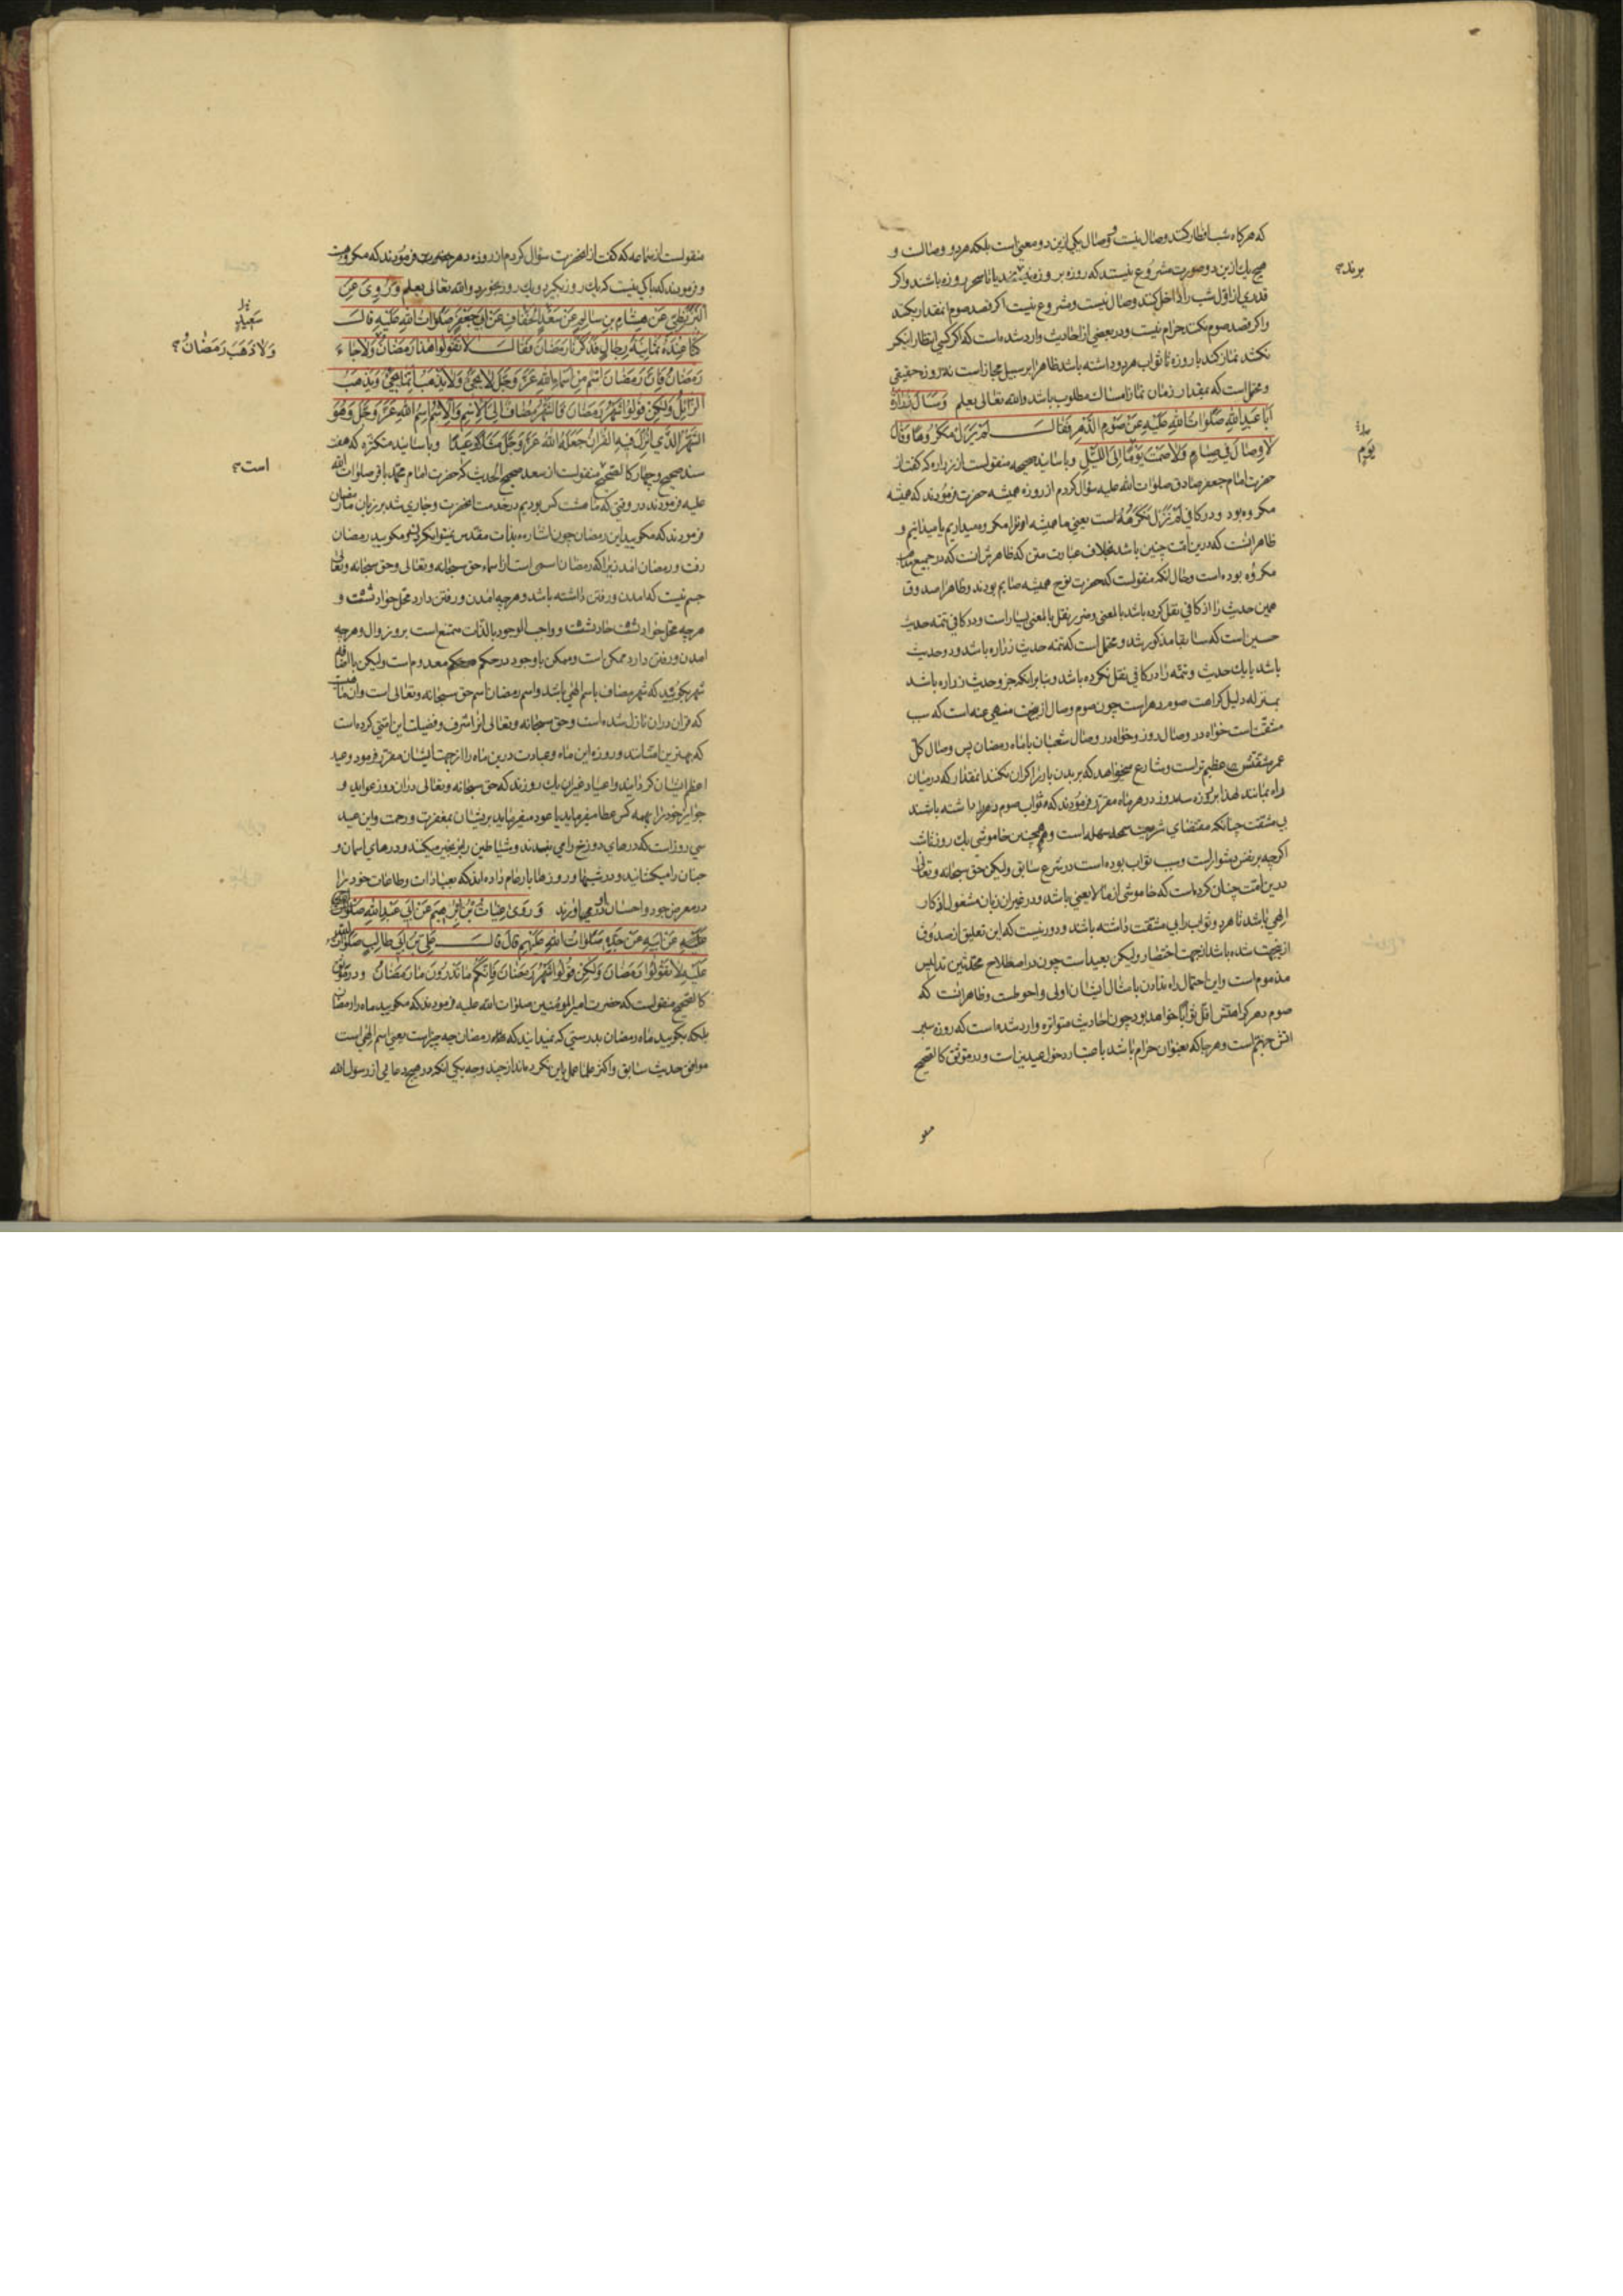 که هرکاه شب افطار کند وصال نیست و وصال یکی ازین دو معنی است بلکه هر دو وصالست و
هیچ یك ازین دو صورت مشروع نیست که روزه بر روزه یا تا سحر روزه باشند واکر
برند؟
قدری از اول شب را داخل کند وصال نیست ومشروع نیست اکر قصد صوم انقدار بکند
واکر قصد صوم نکند حرام نیست ودر بعضی از احادیث وارد شده است که اکر کسی انتظار
نکشد نماز کند با روزه تا ثواب هر دو داشته باشد ظاهرا بر سبیل مجاز است نه روزه حقیقی
ومحتمل است که بمقدار زمان نماز امساك مطلوب باشد والله تعالی یعلم وَسَأَلَ زُرَارَةُ
اَبَا عَبدِاللهِ صَلَوَاتُ اللهِ عَلَیْهِ عَنْ صَوْمِ الدَّهرِ فَقَالَ لَمْ یَزَلْ مَکْرُوهًا وَقَالَ
لَا وِصَالَ فِی صِیَامٍ وَلَا صَمْتَ یَوْمًا اِلَی اللَّیْلِ وباسانید صحیحه منقولست از زراره که کفت از
یَوْمٍ
حضرت امام جعفر صادق صلوات الله علیه سؤال کردم از روزه همیشه حضرت فرمودند که همیشه
مکروه بود ودر کافی لَمْ نَزَلْ نَکْرَهُهُ است یعنی ما همیشه اورا مکروه میداریم یا میدانیم و
ظاهر انست که درین امت چنین باشد بخلاف عبارت متن که ظاهرش انست که در جمیع
مکروه بوده است وحال انکه منقولست که حضرت نوح همیشه صایم بودند وظاهرا صدوق
همین حدیث را از کافی نقل کرده باشد بالمعنی وضرر نقل بالمعنی بسیار است ودر کافی تتمه حدیث
حسین است که سابقا مذکور شد ومحتمل است که تتمه حدیث زراره باشد ودو حدیث
باشد یا یك حدیث وتتمه را در کافی نقل نکرده باشد وبنا برانکه جزو حدیث زراره باشد
بمنزله دلیل کراهت صوم دهر است چون صوم وصال ازینجهت منهی عنه است که سبب
مشقت است خواه در وصال دو روز وخواه در وصال شعبان با ماه رمضان پس وصال کل
عمر مشقتش عظیم تر است وشارع میخواهد که بر بدن بار را کران نکند انمقدار که درمیان
راه بمانند لهذا بروزه سه روز در هر ماه مقرر فرمودند که ثواب صوم دهر را داشته باشند
بی مشقت چنانکه مقتضای شریعت سهله است وهمچنین خاموشی یك روز تا شب
اکرچه بر نفس دشوار است وسبب ثواب بوده است در شرع سابق ولیکن حق سبحانه وتعالی
درین امت چنان کرده است که خاموشی از ما لا یعنی باشد ودر غیر ان زبان مشغول اذکار
الهی باشد تا هر دو ثواب را بی مشقت داشته باشند ودور نیست که این تعلیق از صدوق
ازینجهت شده باشد از جهت اختصار ولیکن بعید است چون در اصطلاح محدثین تدلیس
مذموم است واین احتمال راه ندادن بامثال ایشان اولی واحوطست وظاهر انست که
صوم دهر کراهتش اقل ثوابا خواهد بود چون احادیث متواتره وارد شده است که روزه سپر
اتش جهنم است وهرجا که بعنوان حرام باشد باعتبار دخول عیدین است ودر موثق کالصحیح
منقو
منقولست از سماعه که کفت از انحضرت سؤال کردم از روزه دهر حضرت فرمودند که مکروهست
وفرمودند که باکی نیست که یك روز بکیرد ویك روز بخورد والله تعالی یعلم وَرَوَی عَنِ
الْبَزَنْطِیِّ عَنْ هِشَامِ بْنِ سَالِمٍ عَنْ سَعْدٍ الخَفَّافِ عَنْ اَبِی جَعْفَرٍ صَلَوَاتُ اللهِ عَلَیْهِ قَالَ
سَعِیدٍ
کُنَّا عِنْدَهُ ثَمَانِیَةَ رِجَالٍ فَذَکَرْنَا رَمَضَانَ فَقَالَ لَا تَقُولُوا هَذَا رَمَضَانُ وَلَا جَاءَ
وَلَا ذَهَبَ رَمَضَانُ؟
رَمَضَانُ فَاِنَّ رَمَضَانَ اسْمٌ مِنْ اَسْمَاءِ اللهِ عَزَّ وَجَلَّ لَا یَجِیءُ وَلَا یَذْهَبُ اِنَّمَا یَجِیءُ وَیَذْهَبُ
الزَّائِلُ وَلَکِنْ قُولُوا شَهْرُ رَمَضَانَ فَالشَّهْرُ مُضَافٌ اِلَی الْاِسْمِ وَالْاِسْمُ اسْمُ اللهِ عَزَّ وَجَلَّ وَهُوَ
الشَّهْرُ الَّذِی اُنْزِلَ فِیهِ الْقُرْآنُ جَعَلَهُ اللهُ عَزَّ وَجَلَّ مَثَلًا وَعِیدًا وباسانید متکثره که هفت
سند صحیح وچهار کالصحیح منقولست از سعد صحیح الحدیث که حضرت امام محمد باقر صلوات الله
است؟
علیه فرمودند در وقتی که ما هشت کس بودیم در خدمت انحضرت وجاری شد بر زبان ما رمضان
فرمودند که مکویید این رمضان چون اشاره بذات مقدس نمیتوان کرد ومکویید رمضان
رفت ورمضان امد زیرا که رمضان اسمی است از اسماء حق سبحانه وتعالی وحق سبحانه وتعالی
جسم نیست که امدن ورفتن داشته باشد وهرچه امدن ورفتن دارد محل حوادثست و
هرچه محل حوادثست حادثست وواجب الوجود بالذات ممتنع است برو زوال وهرچه
امدن ورفتن دارد ممکن است وممکن با وجود در حکم معدوم است ولیکن
شهر بکویید که شهر مضاف باسم الهی باشد واسم رمضان اسم حق سبحانه وتعالی است وان
که قران دران نازل شده است وحق سبحانه وتعالی انرا شرف وفضیلت این امتی کرده است
که بهترین امتانند وروزه این ماه وعبادت درین ماه را از جهت ایشان مقرر فرمود وعید
اعظم ایشان کردانید واعیاد غیران یك روزند که حق سبحانه وتعالی دران روز عواید و
جوایز خود را بهمه کس عطا میفرماید یا عود میفرماید بریشان بمغفرت ورحمت واین عید
سی روز است که درهای دوزخ را می بندند وشیاطین را بزنجیر میکنند ودرهای اسمان و
جنان را میکشایند ودر شبها وروزها بار عام داده اند که بعبادات وطاعات خود را
در معرض جود واحسان او در می اورند وَرَوَی غِیَاثُ بْنُ اِبْرَاهِیمَ عَنْ اَبِی عَبْدِ اللهِ صَلَوَاتُ
عَلَیْهِ عَنْ اَبِیهِ عَنْ جَدِّهِ صَلَوَاتُ اللهِ عَلَیْهِمْ قَالَ قَالَ عَلِیُّ بْنُ اَبِی طَالِبٍ صَلَوَاتُ اللهِ
عَلَیْهِ لَا تَقُولُوا رَمَضَانَ وَلَکِنْ قُولُوا شَهْرُ رَمَضَانَ فَاِنَّکُمْ مَا تَدْرُونَ مَا رَمَضَانُ ودر موثق
کالصحیح منقولست که حضرت امیرالمؤمنین صلوات الله علیه فرمودند که مکویید ماه را رمضان
بلکه بکویید ماه رمضان بدرستی که نمیدانید که رمضان چه چیز است یعنی اسم الهی است
موافق حدیث سابق واکثر علما عمل باین نکرده اند از چند وجه یکی انکه در هیچ دعایی از رسول الله